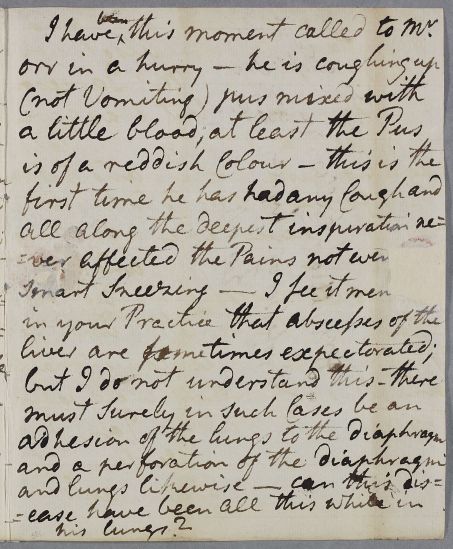 I have, been this moment called to Mr.
orr in a hurry — he is coughing up
(not Vomiting) pus mixed with
a little blood, at least the Pus
is of a reddish Colour — this is the
first time he has had any Cough and
all along the deepest inspiration ne=
=ver affected the Pains not even
Smart Sneezing — I see it men
in your Practice that abscesses of the
liver are sometimes expectorated;
but I do not understand this - there
must Surely in such Cases be an
adhesion of the lungs to the diaphragm
and a perforation of the diaphragm
and lungs likewise — can this dis=
=ease have been all this while in
his lungs?